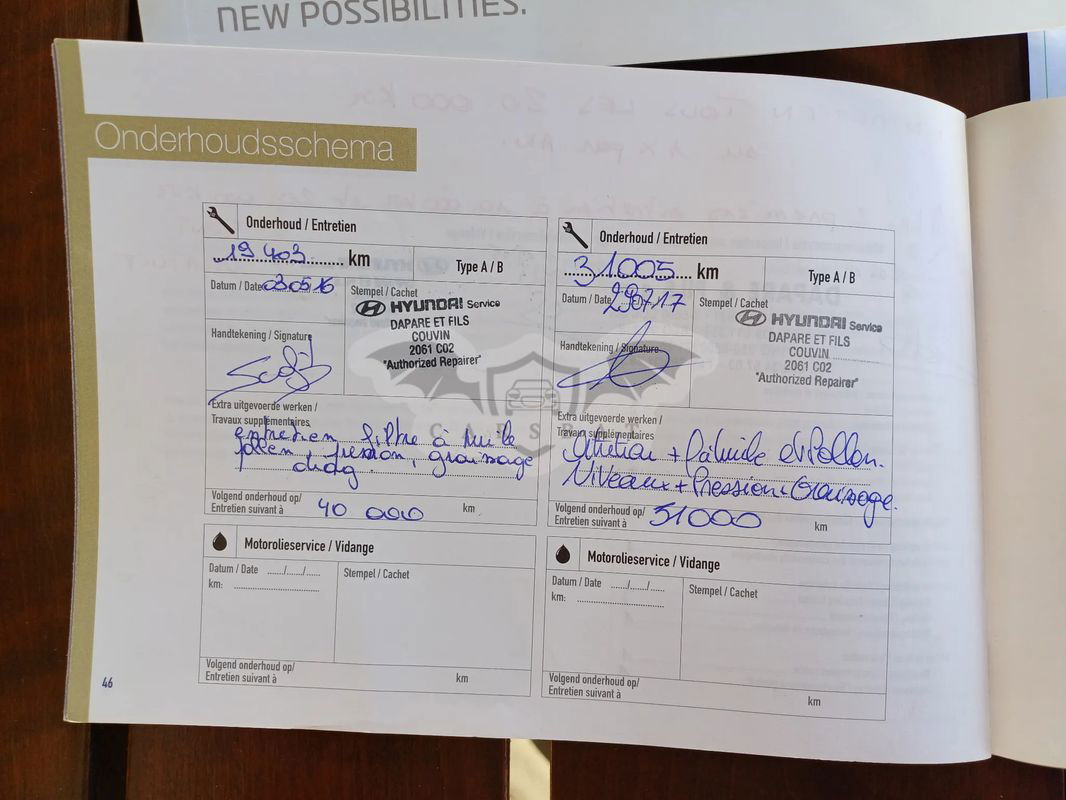 NEW POSSIBILITIES.
Onderhoudsschema
Onderhoud / Entretien
19 403 km
Type A / B
Datum / Date 030516
Stempel / Cachet
HYUNDAI Service
DAPARE ET FILS
COUVIN
2061 C02
"Authorized Repairer"
Handtekening / Signature
Extra uitgevoerde werken /
Travaux supplémentaires
entretien filtre à huile
pollen, pression, graissage
diag.
Volgend onderhoud op/
Entretien suivant à 40 000 km
Motorolieservice / Vidange
Datum / Date ....../....../......
km:
Stempel / Cachet
Volgend onderhoud op/
Entretien suivant à km
Onderhoud / Entretien
31005 km
Type A / B
Datum / Date 290717
Stempel / Cachet
HYUNDAI Service
DAPARE ET FILS
COUVIN
2061 C02
"Authorized Repairer"
Handtekening / Signature
Extra uitgevoerde werken /
Travaux supplémentaires
+ et Pollen.
Niveaux + Pression + Graissage.
Volgend onderhoud op/
Entretien suivant à 51000 km
Motorolieservice / Vidange
Datum / Date ....../....../......
km:
Stempel / Cachet
Volgend onderhoud op/
Entretien suivant à km
46
CARSBAT